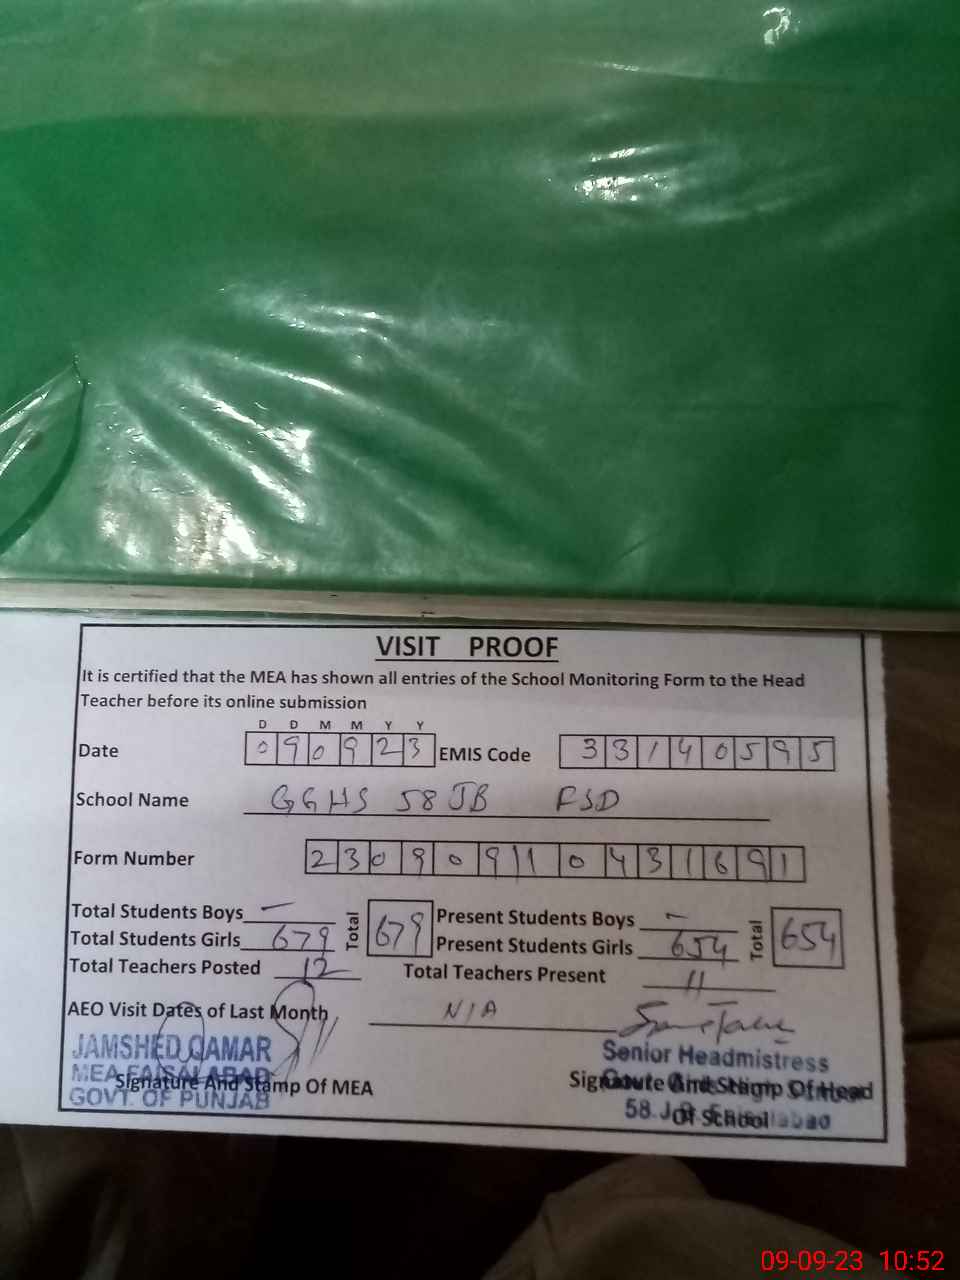 VISIT PROOF
It is certified that the MEA has shown all entries of the School Monitoring Form to the Head
Teacher before its online submission
D D M M Y Y
Date 0 9 0 9 2 3 EMIS Code 3 3 1 4 0 5 9 5
School Name GGHS 58 JB FSD
Form Number 2 3 0 9 0 9 1 1 0 4 3 1 6 9 1
Total Students Boys – Total 679 Present Students Boys – Total 654
Total Students Girls 679 Present Students Girls 654
Total Teachers Posted 12 Total Teachers Present 11
AEO Visit Dates of Last Month N/A
JAMSHED QAMAR
MEA FAISALABAD
GOVT. OF PUNJAB
Signature And Stamp Of MEA
Senior Headmistress
Signature And Stamp Of Head
Of School
58 J.B Faisalabad
09-09-23 10:52